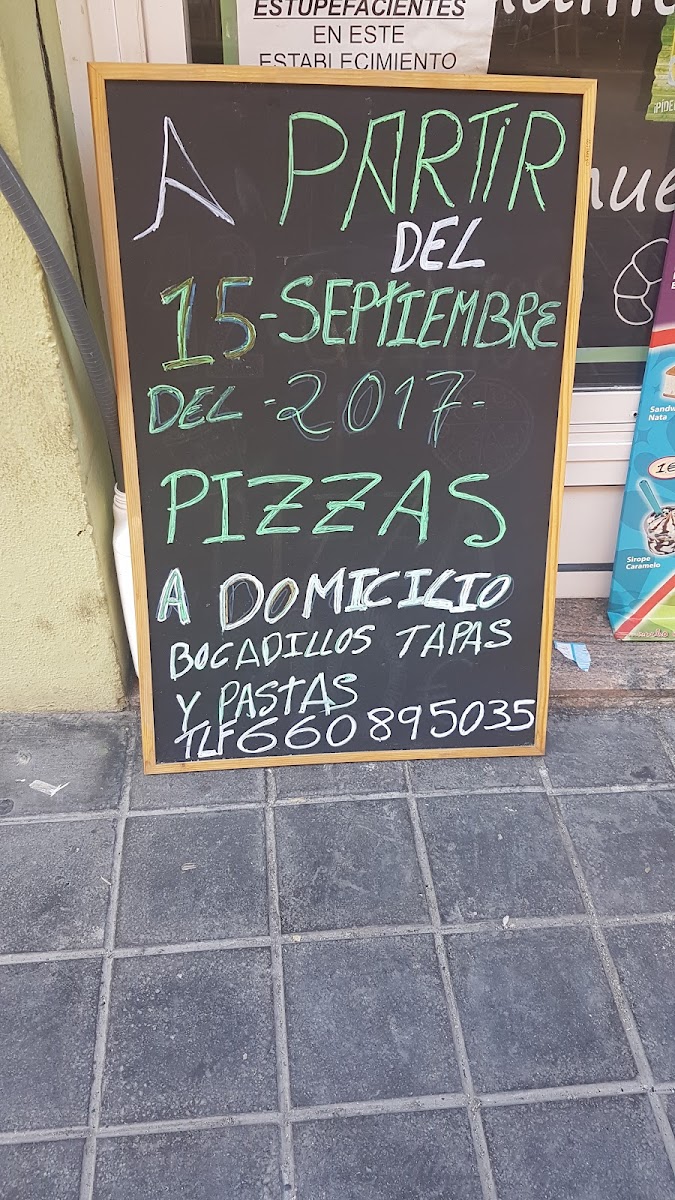 ESTUPEFACIENTES
EN ESTE
ESTABLECIMIENTO
A PARTIR
DEL
15-SEPTIEMBRE
DEL - 2017-
PIZZAS
A DOMICILIO
BOCADILLOS TAPAS
Y PASTAS
TLF 660895035
Nata
1€
Sirope
Caramelo